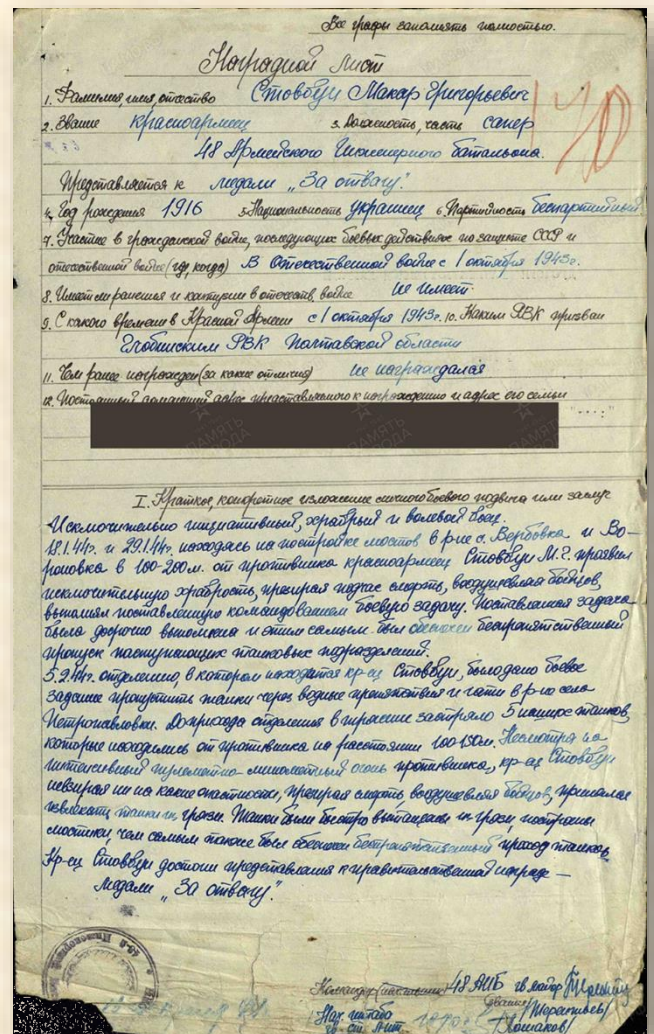 Все графы заполнять полностью.
Наградной лист
1. Фамилия, имя, отчество Стовбун Макар Григорьевич
2. Звание красноармеец 3. Должность, часть сапер
48 Армейского Инженерного батальона.
Представляется к медали „За отвагу".
4. Год рождения 1916 5. Национальность украинец 6. Партийность беспартийный
7. Участие в гражданской войне, последующих боевых действиях по защите СССР и
отечественной войне (где, когда) В Отечественной войне с 1 октября 1943г.
8. Имеет ли ранения и контузии в отечеств. войне не имеет
9. С какого времени в Красной Армии с 1 октября 1943г. 10. Каким РВК призван
Глобинским РВК Полтавской области
11. Чем ранее награжден (за какие отличия) не награждался
12. Постоянный домашний адрес представляемого к награждению и адрес его семьи
I. Краткое, конкретное изложение личного боевого подвига или заслуг
Исключительно инициативный, храбрый и волевой боец.
18.1.44г. и 29.1.44г. находясь на постройке мостов в р-не с. Вербовка и Во-
роновка в 100-200м. от противника красноармеец Стовбун М.Г. проявил
исключительную храбрость, презирая подчас смерть, воодушевляя бойцов,
выполнял поставленную командованием боевую задачу. Поставленная задача
была досрочно выполнена и этим самым был обеспечен беспрепятственный
пропуск наступающих танковых подразделений.
5.2.44г. отделению, в котором находится кр-ец Стовбун, было дано боевое
задание пропустить танки через водные препятствия и гати в р-не села
Петропавловки. До прихода отделения в трясине застряло 5 наших танков,
которые находились от противника на расстоянии 100-150м. Несмотря на
интенсивный пулеметно-минометный огонь противника, кр-ец Стовбун
невзирая ни на какие опасности, презирая смерть, воодушевляя бойцов, принялся
извлекать танки из грязи. Танки были быстро вытащены из грязи, построены
мостики, чем самым также был обеспечен беспрепятственный проход танков.
Кр-ец Стовбун достоин представления к правительственной награде —
медали „За отвагу".
Командир 48 АИБ гв. майор
/Терентьев/
Нач. штаба
гв. ст. лит.